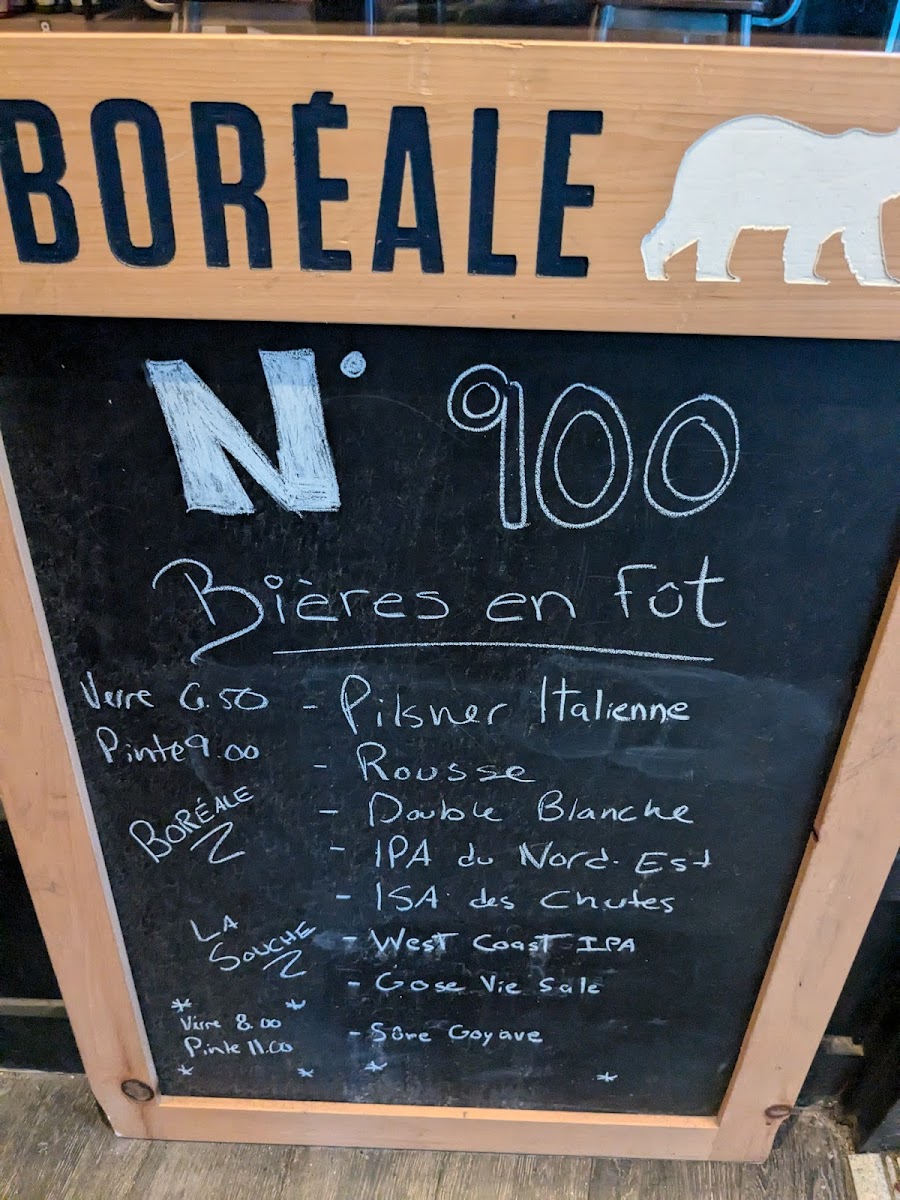 BORÉALE
N° 900
Bières en fût
Verre 6.50 - Pilsner Italienne
Pinte 9.00 - Rousse
BORÉALE - Double Blanche
- IPA du Nord-Est
- ISA des Chutes
LA SOUCHE - West Coast IPA
- Gose Vie Sale
* *
Verre 8.00 - Sûre Goyave
Pinte 11.00
* * * *